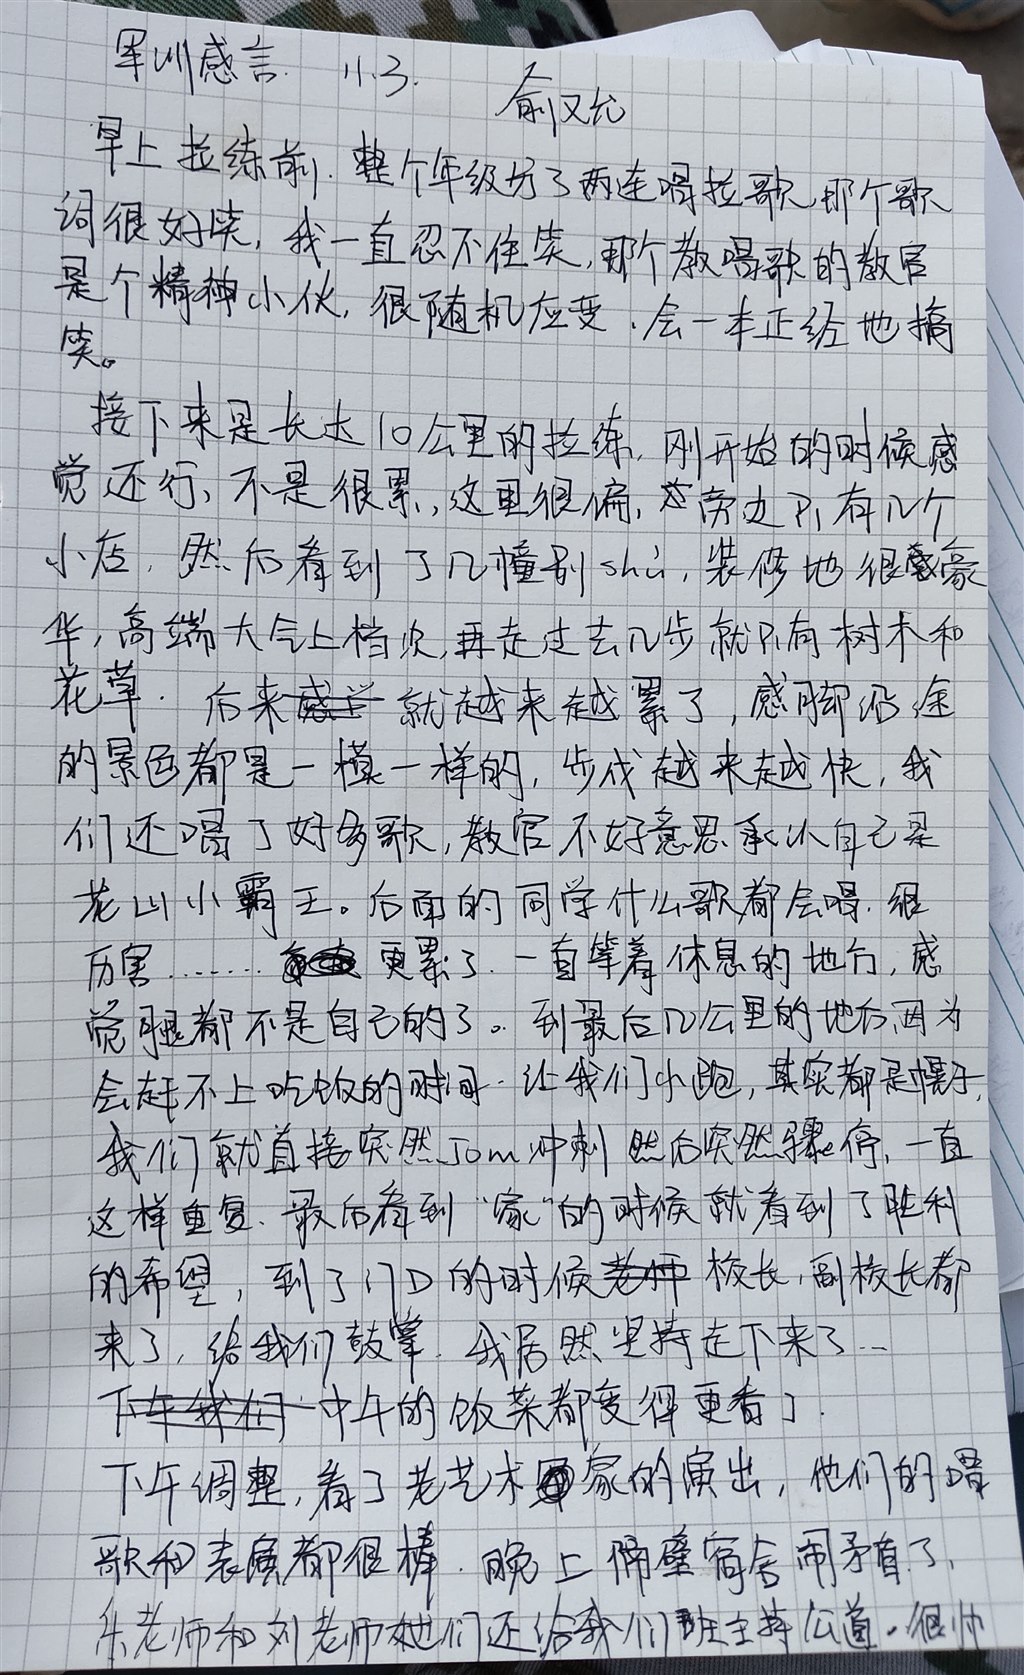 军训感言. 11.3.
俞又尤
早上拉练前.整个年级分了两连唱拉歌,那个歌
词很好笑,我一直忍不住笑,那个教唱歌的教官
是个精神小伙,很随机应变.会一本正经地搞
笑。
接下来是长达10公里的拉练,刚开始的时候感
觉还行,不是很累,这里很偏,旁边只有几个
小店.然后看到了几幢别shù,装修地很豪
华,高端大气上档次,再走过去几步就只有树木和
花草.后来就越来越累了,感脚沿途
的景色都是一模一样的,步伐越来越快,我
们还唱了好多歌,教官不好意思承认自己是
花山小霸王。后面的同学什么歌都会唱.很
厉害........更累了.一直等着休息的地方,感
觉腿都不是自己的了。到最后几公里的地方,因为
会赶不上吃饭的时间.让我们小跑,其实都是幌子,
我们就直接突然50m冲刺然后突然骤停,一直
这样重复.最后看到"家"的时候就看到了胜利
的希望,到了门口的时候校长,副校长都
来了,给我们鼓掌.我居然坚持走下来了...
中午的饭菜都变得更香了.
下午调整,看了老艺术家的演出,他们的唱
歌和表演都很棒.晚上隔壁宿舍闹矛盾了,
朱老师和刘老师她们还给我们班主持公道.很帅